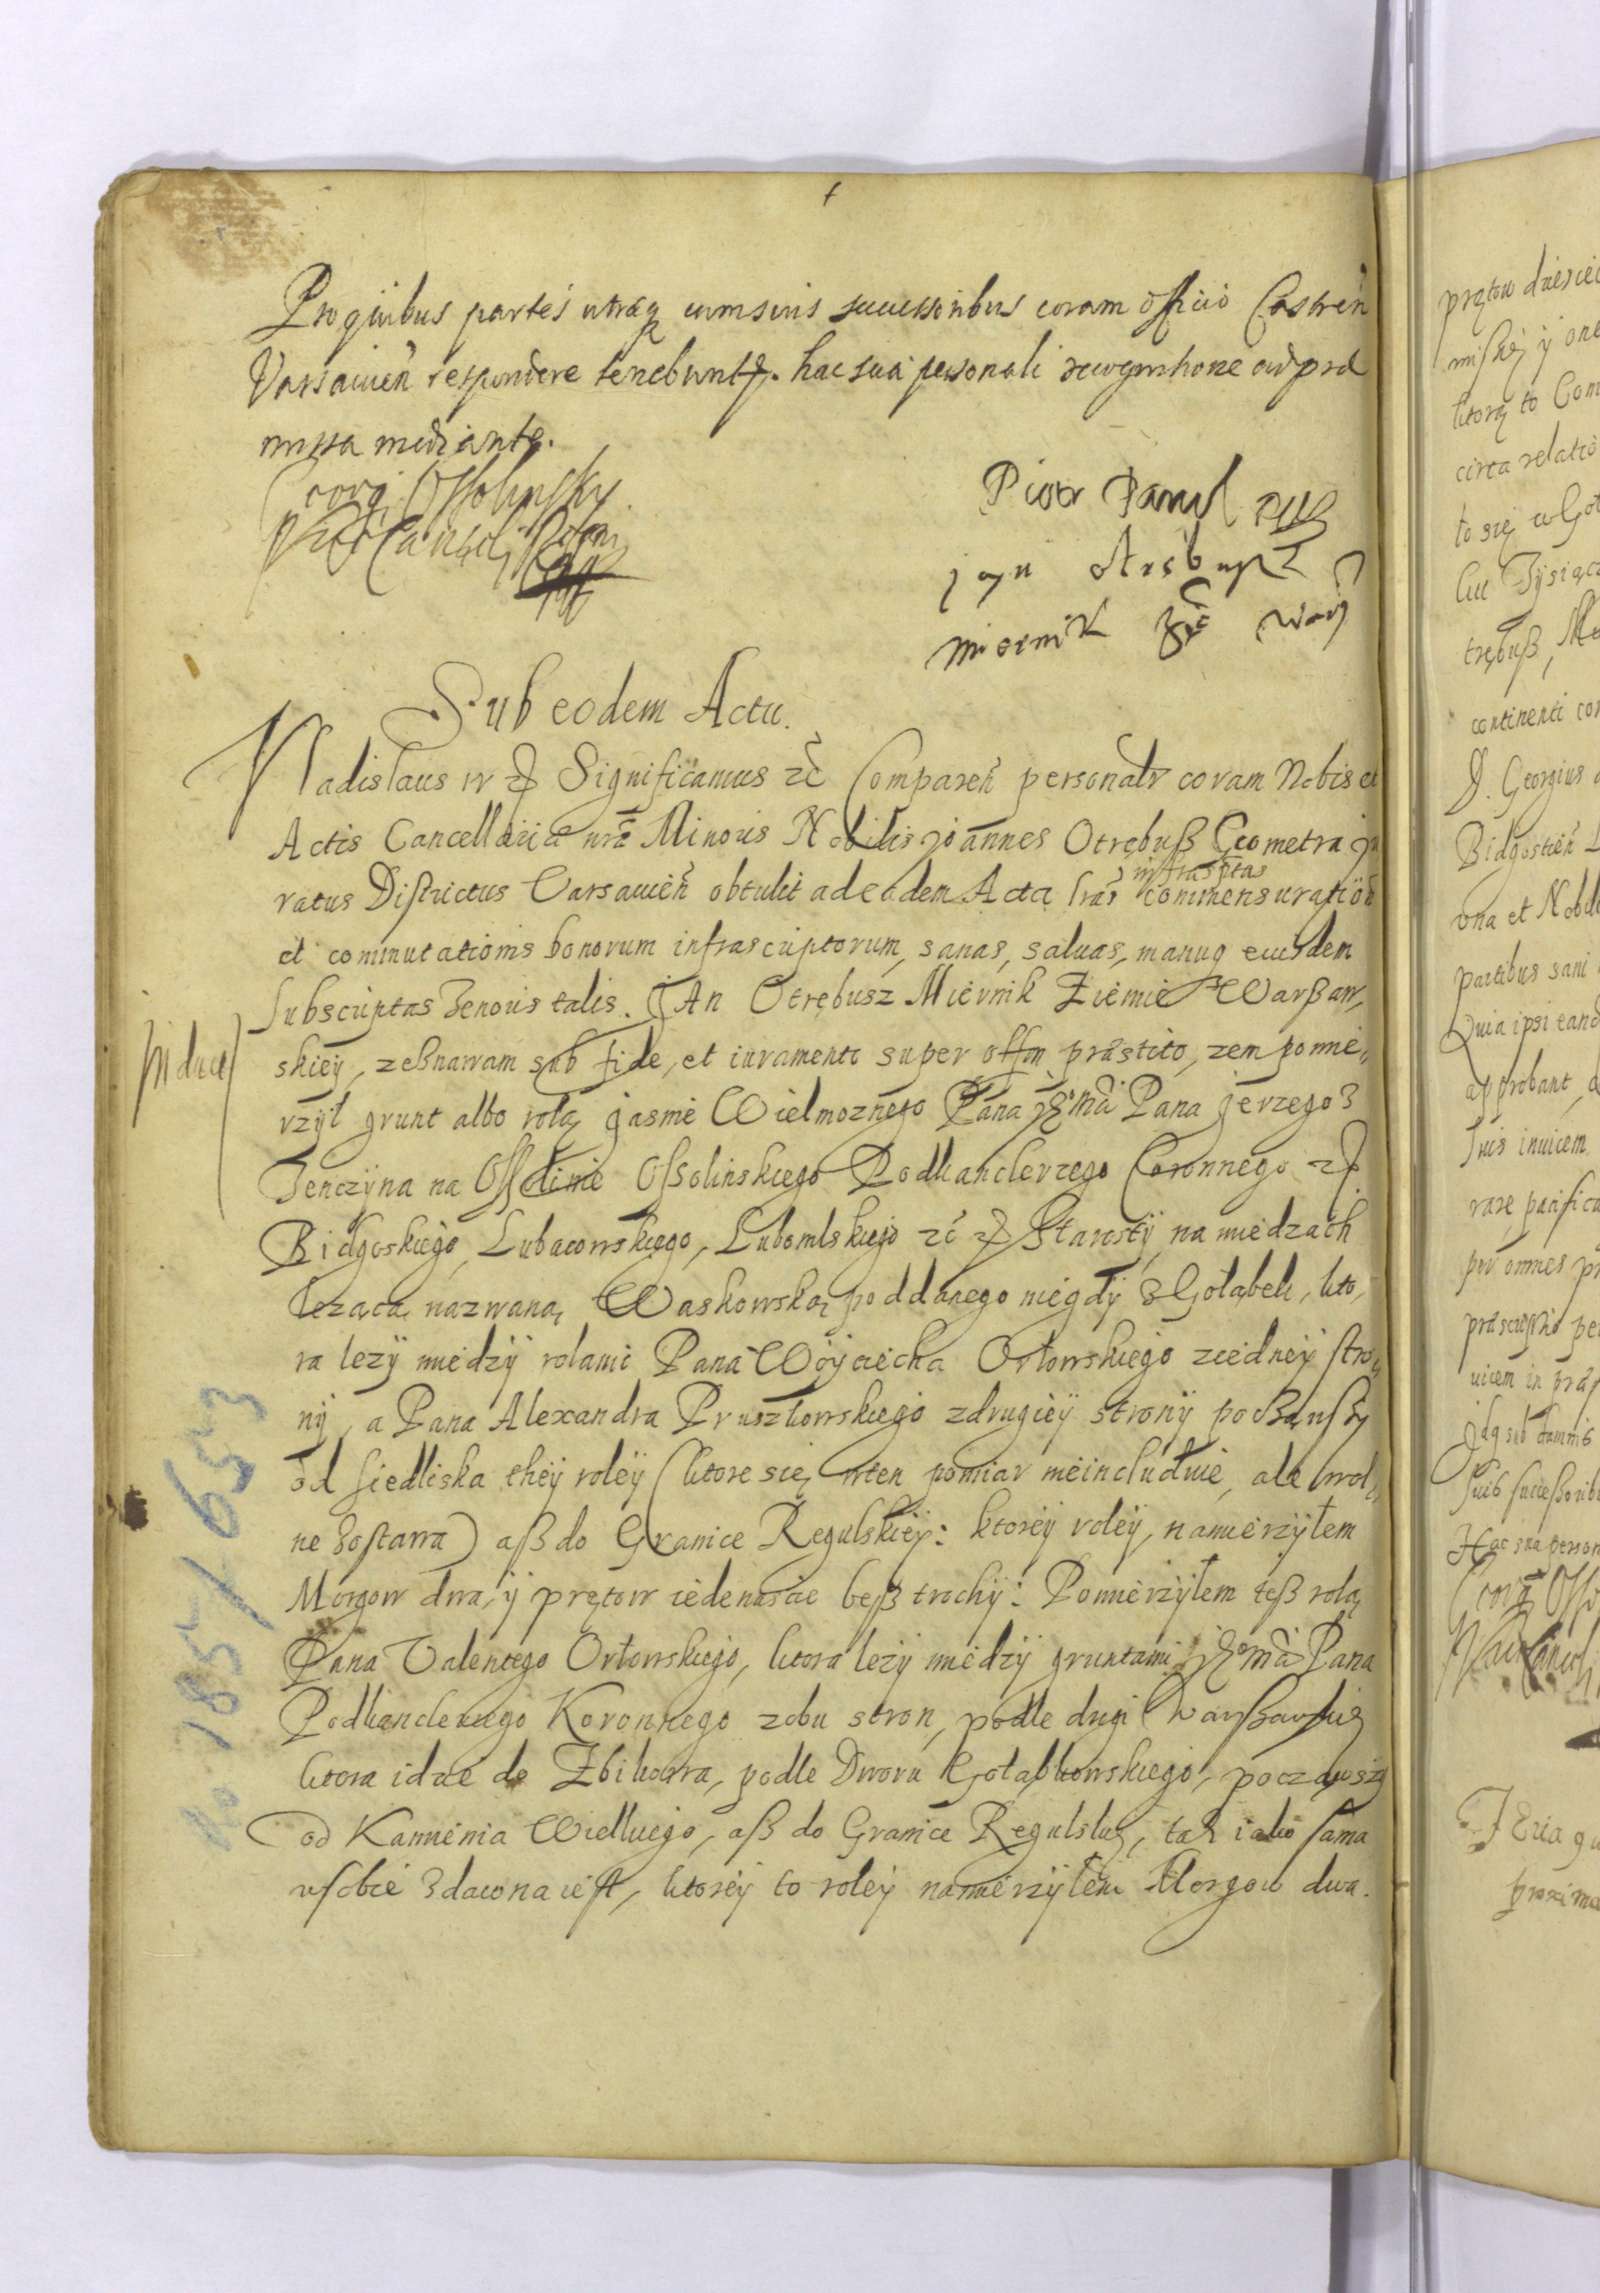 Pro quibus partes utraq cum suis successoribus coram officio Castren
Varsavien respondere tenebuntr. hac sua personali recognitione ad prae
missa mediante.
Georg Ossolinsky
Piotr Pawel
Jan Otrębusz
miernik
Sub eodem Actu.
Vladislaus IV Significamus Comparen personalr coram Nobis et
Actis Cancellariae nrae Minoris Nobilis Joannes Otrębuß Geometra Ju
infrasptas
ratus Districtus Varsavien obtulit ad eadem Acta lras commensuration
et commutationis bonorum infrascriptorum, sanas, saluas, manuq eiusdem
subscriptas Tenoris talis. JAn Otrębusz Miernik Ziemie Warßaw,
Induc
skiey, zeßnawam sub fide, et iuramento super offm praestito, zem pomie,,
rzył grunt albo rolą jasnie Wielmoznego Pana Pana jerzego z
Tenczyna na Ossolinie Ossolinskiego Podkanclerzego Coronnego
Bidgoskiego, Lubaczowskiego, Lubomlskiego Starosty, na miedzach
lezącą nazwaną Waskowską poddanego niegdy z Gołąbek, kto,
ra lezy miedzy rolami Pana Woyciecha Orłowskiego ziedney stro,,
ny, a Pana Alexandra Pruszkowskiego zdrugiey strony począwsży
od siedliska they roley (ktore się wten pomiar nieincluduie, ale wol,,
ne zostawa) aß do Granice Regulskiey: ktorey roley, namierzyłem
Morgow dwa, y prętow iedenaście beß trochy: Pomierzyłem teß rolą
Pana Valentego Orłowskiego, ktora lezy miedzy gruntami Pana
Podkanclerzego Koronnego zobu stron, podle drogi Warßawskiej
ktora idzie do Zbikowa, podle Dworu Gołąbkowskiego, począwszy
od Kamienia Wielkiego, aß do Granice Regulskiej, tak iako sama
wsobie zdawna iest, ktorey to roley namierzyłem Morgow dwa.
185/653
prętow dziesięć
circa relatio
to się w Goł
Tysiącz
trębuß, Mi
continenti
D. Georgius
Bidgostien
ona et Nobil
partibus sani
Quia ipsi eand
approbant,
suis inuicem
per omnes
uicem in
Hac sua person
Georg Osso
proxima